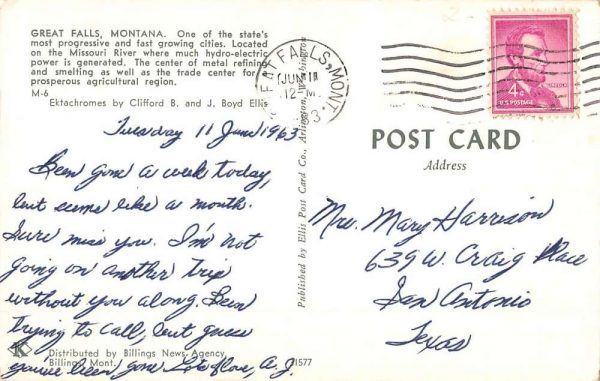 GREAT FALLS, MONTANA. One of the state's
most progressive and fast growing cities. Located
on the Missouri River where much hydro-electric
power is generated. The center of metal refining
and smelting as well as the trade center for a
prosperous agricultural region.
M-6
Ektachromes by Clifford B. and J. Boyd Ellis
Tuesday 11 June 1963
Been gone a week today,
but seems like a month.
Sure miss you. I'm not
going on another trip
without you along. Been
trying to call, but guess
you've been gone. Lots of love, A.J.
K
Distributed by Billings News Agency
Billings, Mont.
71577
Published by Ellis Post Card Co., Arlington, Washington
GREAT FALLS, MONT.
JUN 11
12-M
POST CARD
Address
4¢
LINCOLN
U.S. POSTAGE
Mrs. Mary Harrison
639 W. Craig Place
San Antonio
Texas